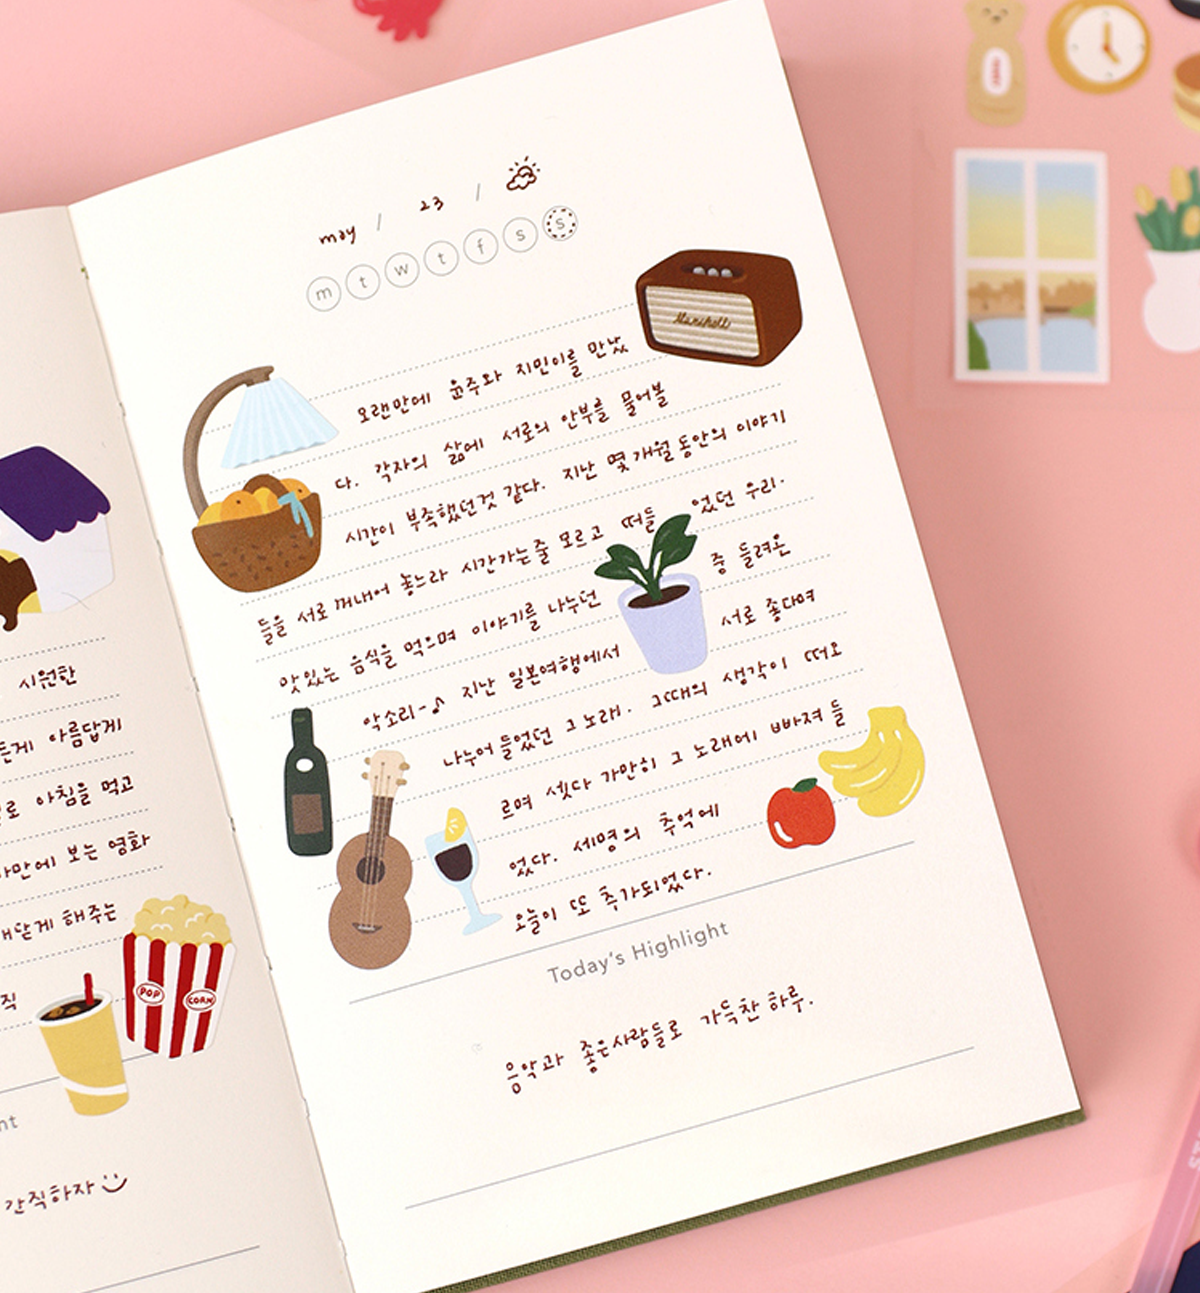 may / 23 /
m t w t f s s
Marshall
오랜만에 윤주와 지민이를 만났
다. 각자의 삶에 서로의 안부를 물어볼
시간이 부족했던것 같다. 지난 몇개월동안의 이야기
들을 서로 꺼내어 놓느라 시간가는줄 모르고 떠들 었던 우리.
맛있는 음식을 먹으며 이야기를 나누던 중 들려온
악소리-♪ 지난 일본여행에서 서로 좋다며
나누어 들었던 그 노래. 그때의 생각이 떠오
르며 셋다 가만히 그 노래에 빠져 들
었다. 세명의 추억에
오늘이 또 추가되었다.
Today's Highlight
음악과 좋은사람들로 가득찬 하루.
시원한
아름답게
아침을 먹고
만에 보는 영화
닫게 해주는
직
POP CORN
간직하자